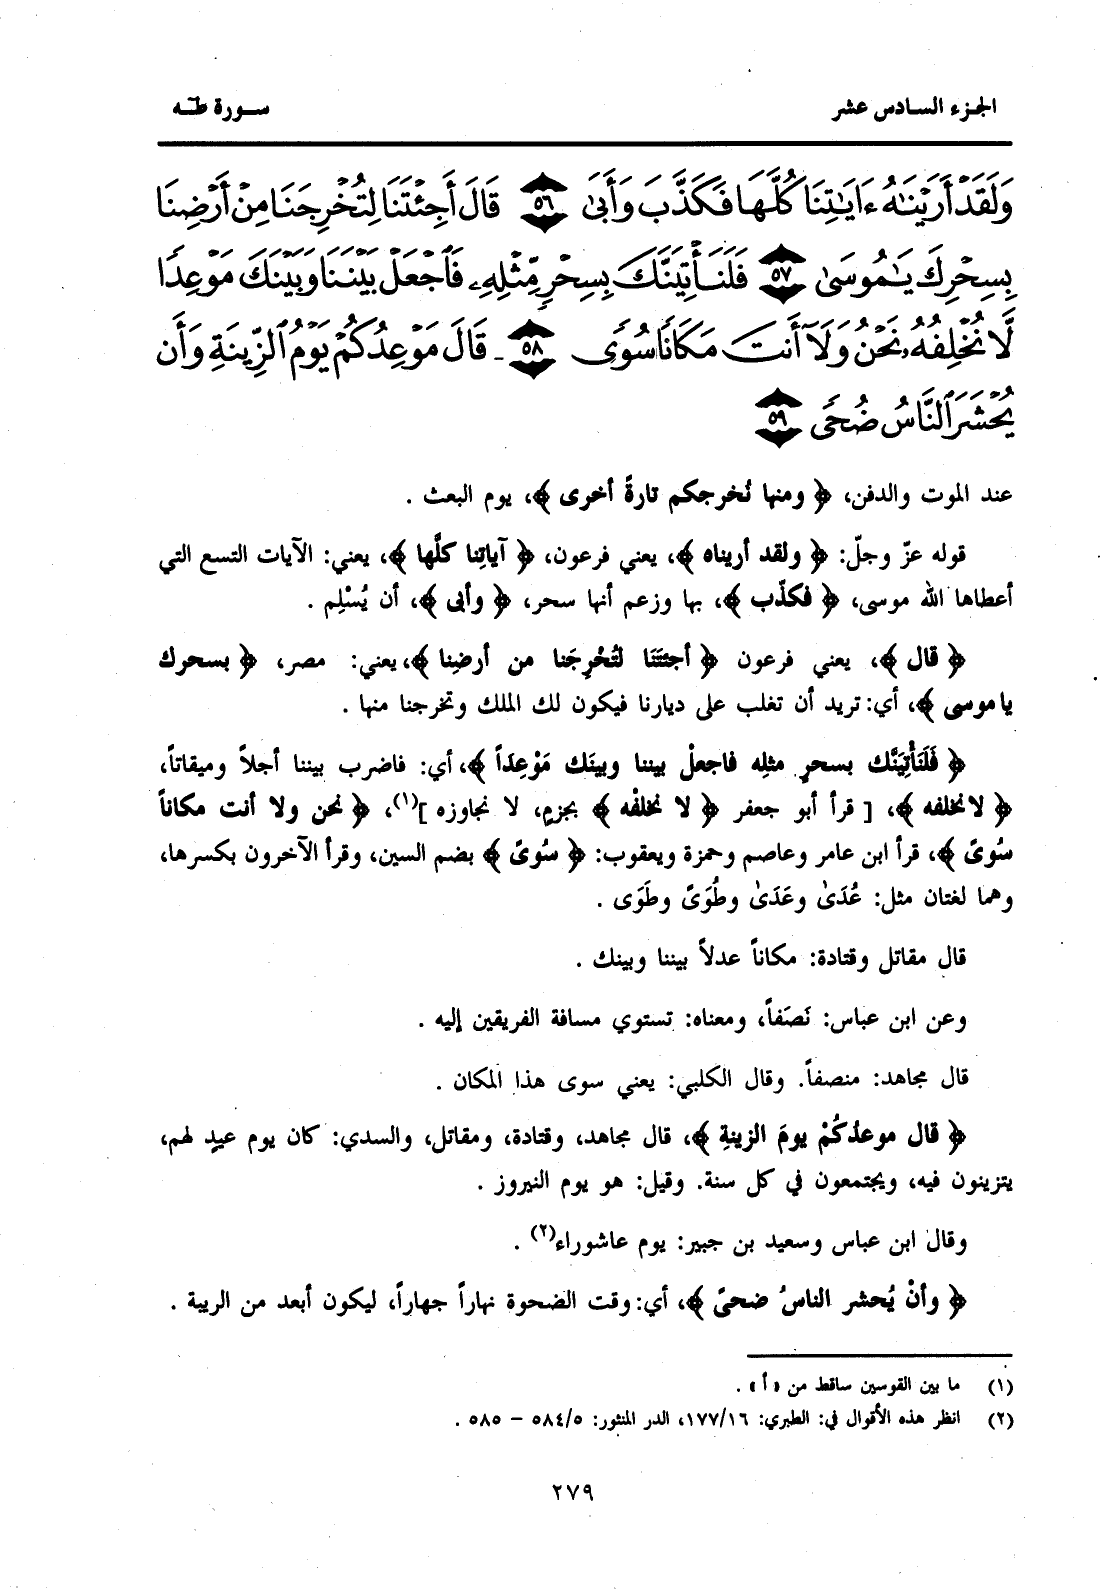 الجزء السادس عشر
سورة طه
وَلَقَدْ أَرَيْنَٰهُ ءَايَٰتِنَا كُلَّهَا فَكَذَّبَ وَأَبَىٰ ٥٦ قَالَ أَجِئْتَنَا لِتُخْرِجَنَا مِنْ أَرْضِنَا
بِسِحْرِكَ يَٰمُوسَىٰ ٥٧ فَلَنَأْتِيَنَّكَ بِسِحْرٍ مِّثْلِهِۦ فَٱجْعَلْ بَيْنَنَا وَبَيْنَكَ مَوْعِدًا
لَّا نُخْلِفُهُۥ نَحْنُ وَلَآ أَنتَ مَكَانًا سُوًى ٥٨ قَالَ مَوْعِدُكُمْ يَوْمُ ٱلزِّينَةِ وَأَن
يُحْشَرَ ٱلنَّاسُ ضُحًى ٥٩
عند الموت والدفن، ﴿ ومنها نُخرجكم تارةً أخرى ﴾، يوم البعث .
قوله عزّ وجلّ: ﴿ ولقد أريناه ﴾، يعني فرعون، ﴿ آياتِنا كلَّها ﴾، يعني: الآيات التسع التي
أعطاها الله موسى، ﴿ فكذّب ﴾، بها وزعم أنها سحر، ﴿ وأبى ﴾، أن يُسْلِم .
﴿ قال ﴾، يعني فرعون ﴿ أجئتَنَا لتُخْرِجَنا من أرضِنا ﴾، يعني: مصر، ﴿ بسحرك
ياموسى ﴾، أي: تريد أن تغلب على ديارنا فيكون لك الملك وتخرجنا منها .
﴿ فَلَنَأْتِيَنَّك بسحرٍ مثلِه فاجعلْ بيننا وبينَك مَوْعِدَاً ﴾، أي: فاضرب بيننا أجلاً وميقاتاً،
﴿ لانخلفه ﴾، [ قرأ أبو جعفر ﴿ لا نخلفْه ﴾ بجزمٍ، لا نجاوزه ](١)، ﴿ نحن ولا أنت مكاناً
سُوىً ﴾، قرأ ابن عامر وعاصم وحمزة ويعقوب: ﴿ سُوىً ﴾ بضم السين، وقرأ الآخرون بكسرها،
وهما لغتان مثل: عُدَىٰ وعَدَىٰ وطُوَىً وطَوَى .
قال مقاتل وقتادة: مكاناً عدلاً بيننا وبينك .
وعن ابن عباس: نَصَفاً، ومعناه: تستوي مسافة الفريقين إليه .
قال مجاهد: منصفاً. وقال الكلبي: يعني سوى هذا المكان .
﴿ قال موعدُكُمْ يومَ الزينةِ ﴾، قال مجاهد، وقتادة، ومقاتل، والسدي: كان يوم عيدٍ لهم،
يتزينون فيه، ويجتمعون في كل سنة. وقيل: هو يوم النيروز .
وقال ابن عباس وسعيد بن جبير: يوم عاشوراء(٢) .
﴿ وأنْ يُحشر الناسُ ضحىً ﴾، أي: وقت الضحوة نهاراً جهاراً، ليكون أبعد من الريبة .
(١) ما بين القوسين ساقط من « أ » .
(٢) انظر هذه الأقوال في: الطبري: ١٧٧/١٦، الدر المنثور: ٥٨٤/٥ - ٥٨٥ .
٢٧٩